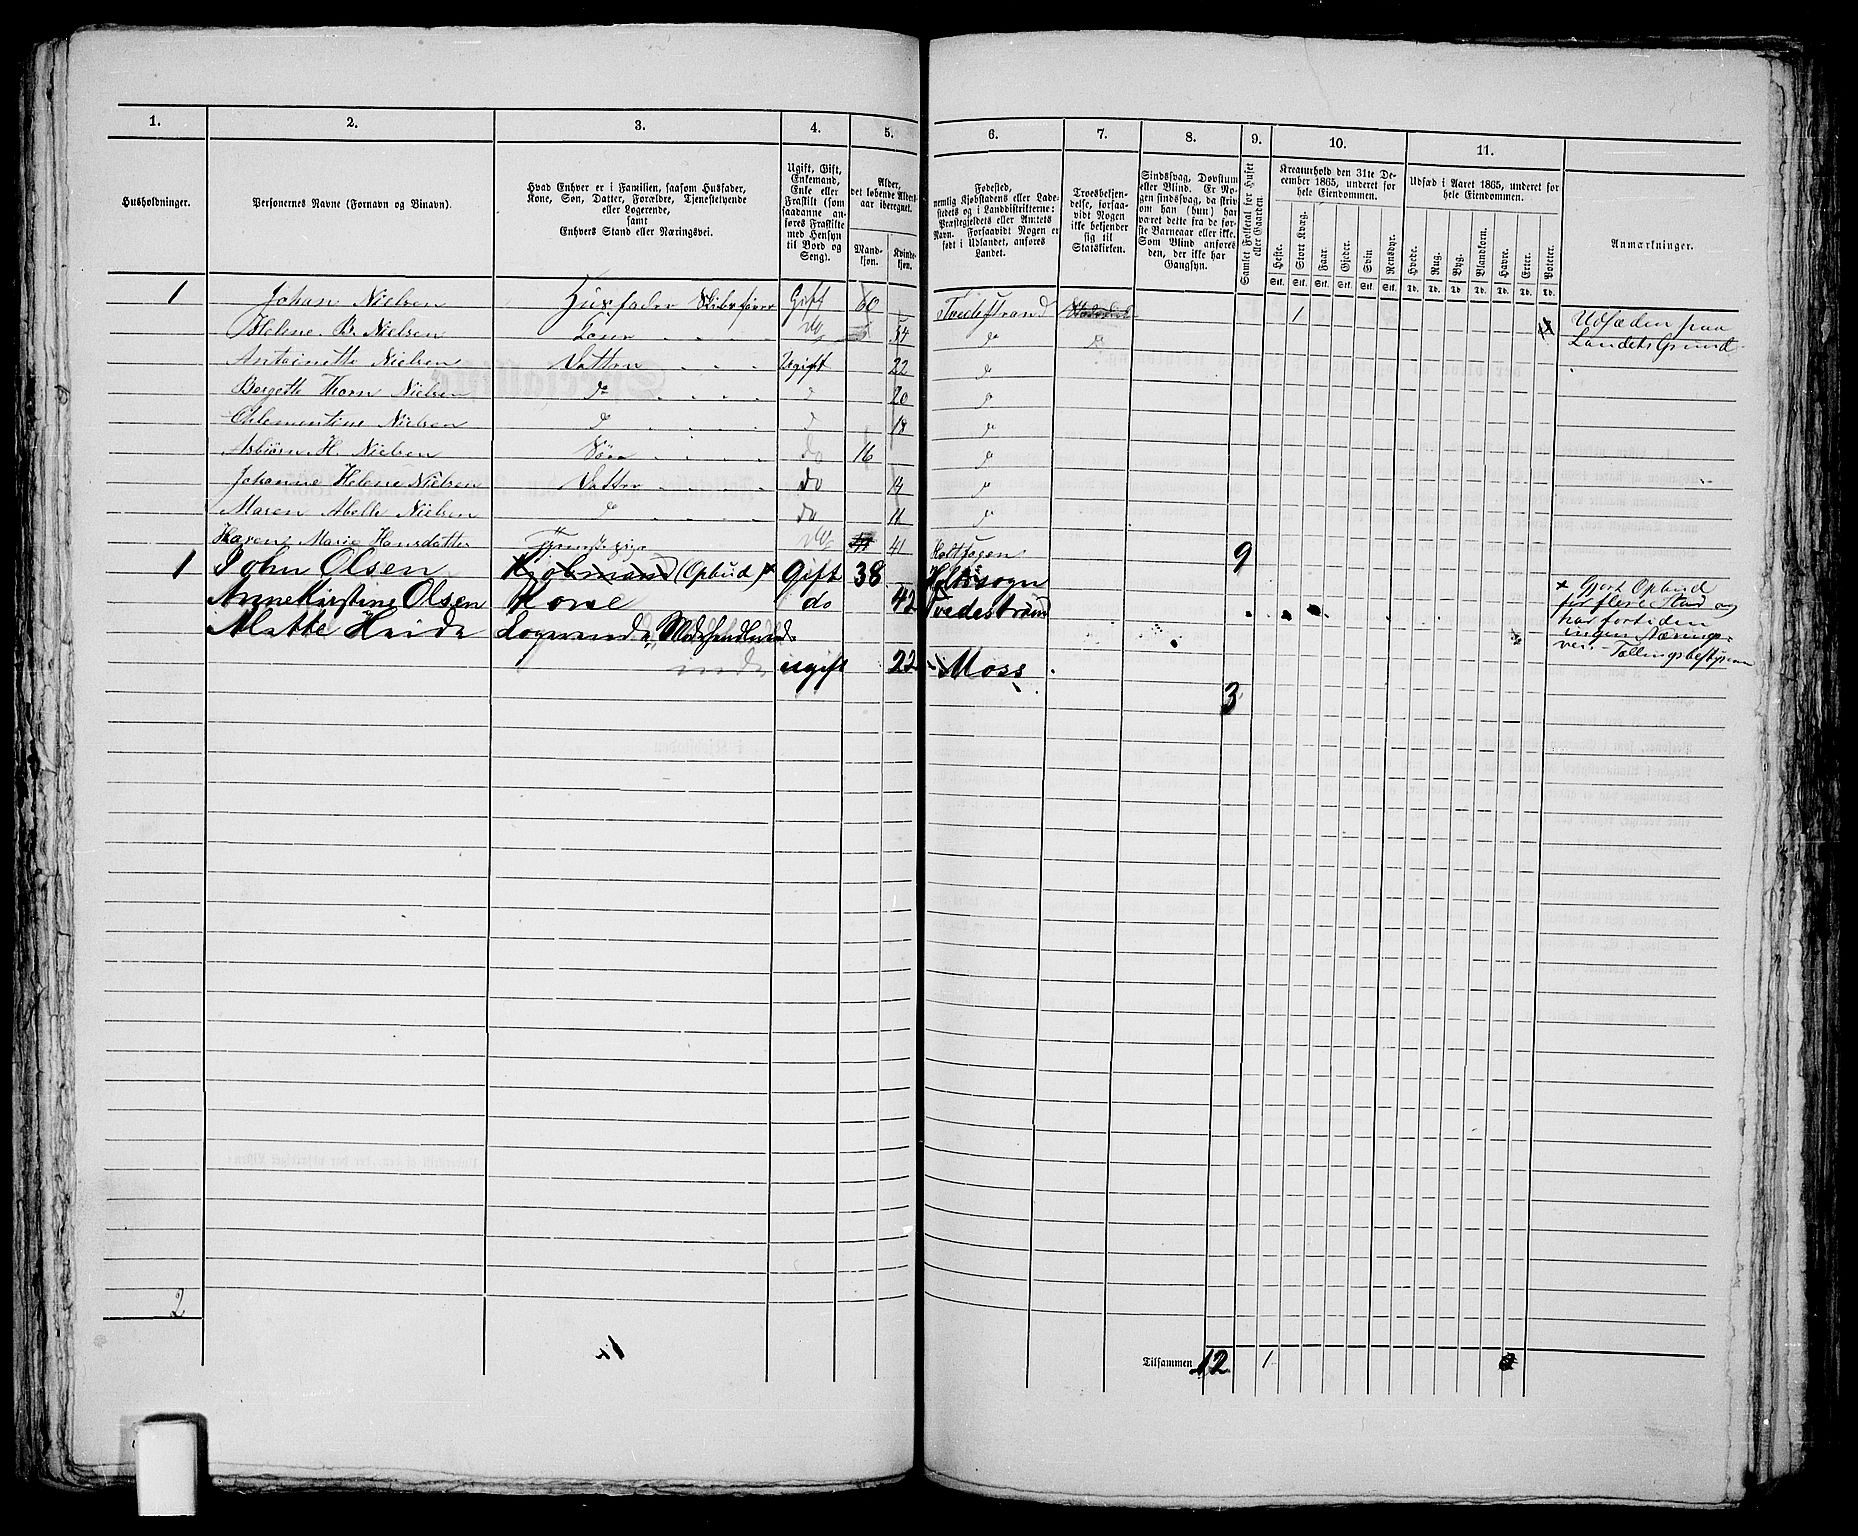 1. 2. 3. 4. 5. 6. 7. 8. 9. 10. 11.
Husholdninger.
Personernes Navne (Fornavn og Binavn).
Hvad Enhver er i Familien, saasom Husfader,
Kone, Søn, Datter, Forældre, Tjenestetyende
eller Logerende,
samt
Enhvers Stand eller Næringsvei.
Ugift, Gift,
Enkemand,
Enke eller
Fraskilt (som
saadanne an-
føres Fraskilte
med Hensyn
til Bord og
Seng).
Alder,
det løbende Alders-
aar iberegnet.
Mand-
kjøn.
Kvinde-
kjøn.
Fødested,
nemlig Kjøbstadens eller Lade-
stedets og i Landdistrikterne:
Præstegjeldets eller Amtets
Navn. Forsaavidt Nogen er
født i Udlandet, anføres
Landet.
Troesbekjen-
delse, forsaa-
vidt Nogen
ikke bekjender
sig til
Statskirken.
Sindssvag, Døvstum
eller Blind. Er No-
gen sindssvag, da skriv
om han (hun) har
været dette fra de før-
ste Barneaar eller ikke.
Som Blind anføres
den, der ikke har
Gangsyn.
Samlet Folketal for Huset
eller Gaarden.
Kreaturhold den 31te De-
cember 1865, underet for
hele Eiendommen.
Heste. Stort Kvæg. Faar. Gjeder. Svin Rensdyr.
Stk. Stk. Stk. Stk. Stk. Stk.
Udsæd i Aaret 1865, underet for
hele Eiendommen.
Hvede. Rug. Byg. Blandkorn. Havre. Erter. Poteter.
Td. Td. Td. Td. Td. Td. Td.
Anmærkninger.
1 Johan Nielsen Huusfader Skibsfører Gift 60 Tvedestrand 1 Udsæden paa
Helene B. Nielsen Kone do 54 do Landets Grund
Antoinette Nielsen Datter Ugift 22 do
Bergette Thorn Nielsen do 20 do
Clementine Nielsen do 18 do
Asbiørn H. Nielsen Søn do 16 do
Johanne Helene Nielsen Datter do 14 do
Maren Abelle Nielsen do do 11 do
Karen Marie Hansdatter Tjenestepige 41 Holt Sogn 9
1 John Olsen Kjøbmand (Opbud) × Gift 38 Holt sogn
Anne Kirstine Olsen Kone do 42 Tvedestrand
× Gjort Opbud
for flere Aar og
har fortiden
ingen Nærings-
vei. Tællingsbestyreren
Logerende, Modehandlerinde ugift 22 Moss
3
2
Tilsammen 12 1